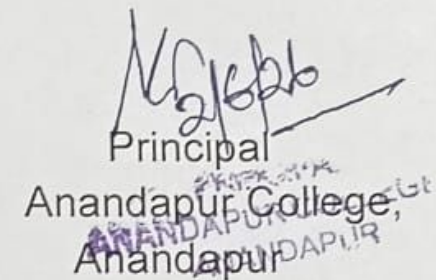 2/6/26
Principal
Anandapur College,
Anandapur
PRINCIPAL
ANANDAPUR COLLEGE
ANANDAPUR